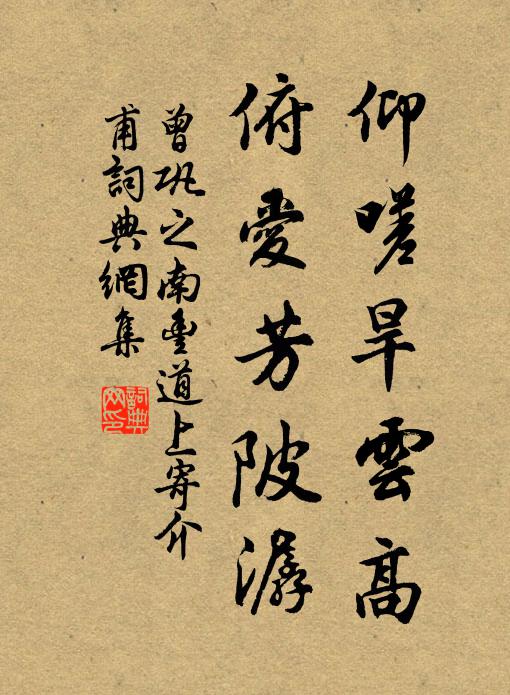 仰嗟旱雲高
俯愛芳陂潺
曾巩之南豐道上寄介
甫詞典網集
詞典
网印